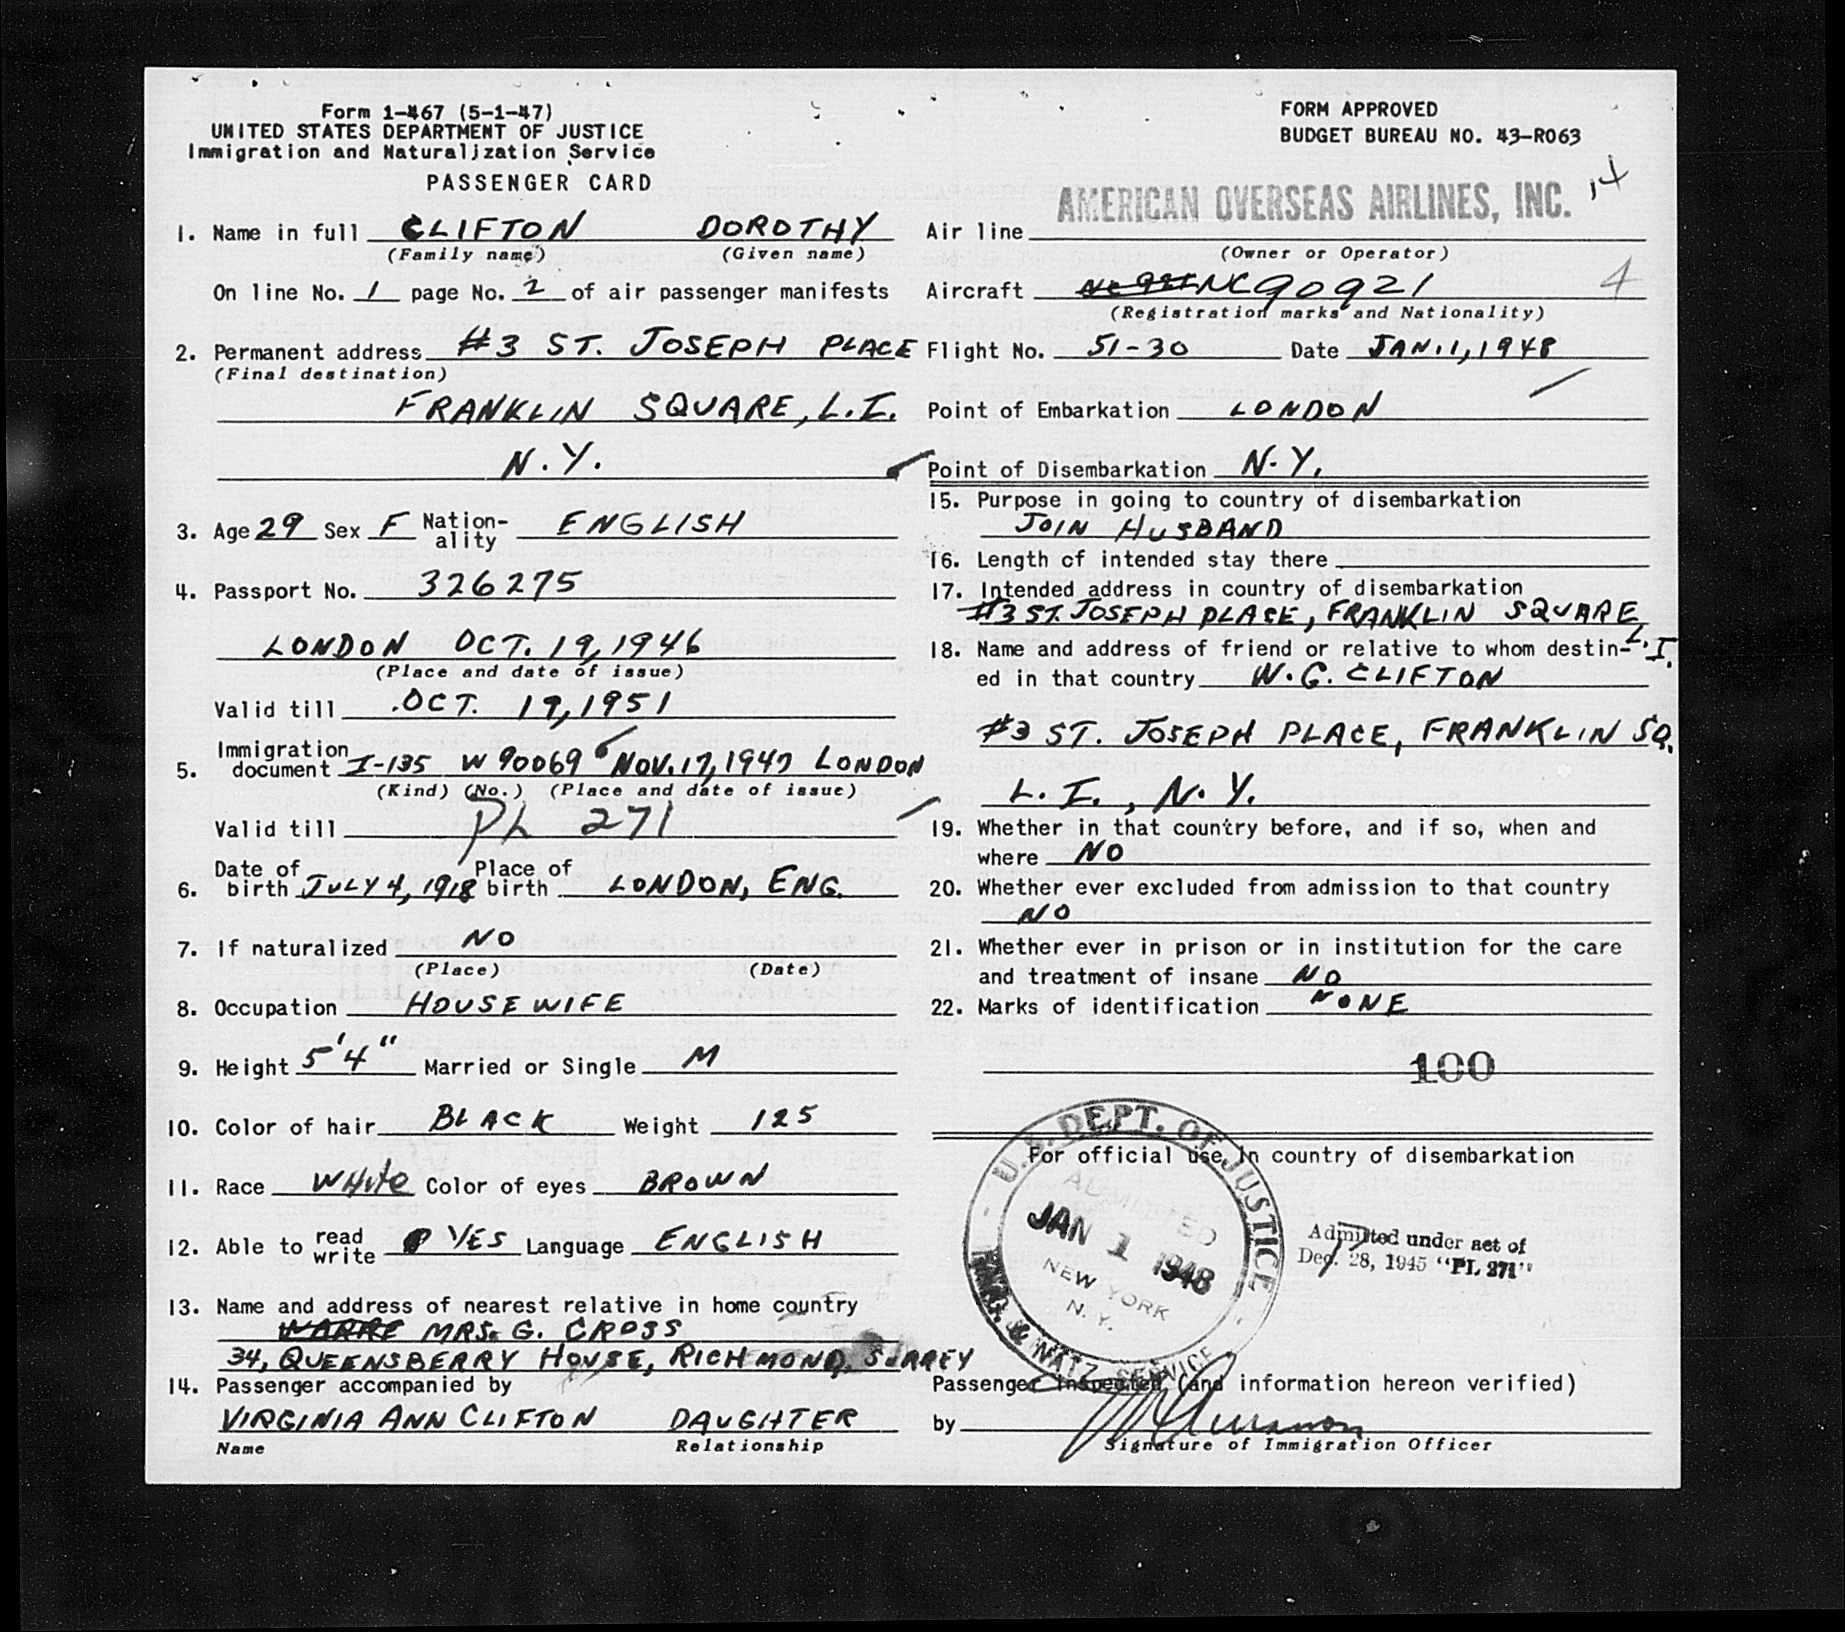 Form 1-467 (5-1-47)
UNITED STATES DEPARTMENT OF JUSTICE
Immigration and Naturalization Service
PASSENGER CARD
FORM APPROVED
BUDGET BUREAU NO. 43-R063
14
1. Name in full CLIFTON DOROTHY
(Family name) (Given name)
On line No. 1 page No. 2 of air passenger manifests
2. Permanent address #3 ST. JOSEPH PLACE
(Final destination)
FRANKLIN SQUARE, L.I.
N.Y.
3. Age 29 Sex F Nation-ality ENGLISH
4. Passport No. 326275
LONDON OCT. 19, 1946
(Place and date of issue)
Valid till OCT. 19, 1951
5. Immigration document I-135 W 90069 NOV. 17, 1947 LONDON
(Kind) (No.) (Place and date of issue)
Valid till PL 271
6. Date of birth JULY 4, 1918 Place of birth LONDON, ENG.
7. If naturalized NO
(Place) (Date)
8. Occupation HOUSEWIFE
9. Height 5'4" Married or Single M
10. Color of hair BLACK Weight 125
11. Race White Color of eyes BROWN
12. Able to read write YES Language ENGLISH
13. Name and address of nearest relative in home country
MRS. G. CROSS
34, QUEENSBERRY HOUSE, RICHMOND, SURREY
14. Passenger accompanied by
VIRGINIA ANN CLIFTON DAUGHTER
Name Relationship
Air line AMERICAN OVERSEAS AIRLINES, INC.
(Owner or Operator)
Aircraft NC90921 4
(Registration marks and Nationality)
Flight No. 51-30 Date JAN. 1, 1948
Point of Embarkation LONDON
Point of Disembarkation N.Y.
15. Purpose in going to country of disembarkation
JOIN HUSBAND
16. Length of intended stay there
17. Intended address in country of disembarkation
#3 ST. JOSEPH PLACE, FRANKLIN SQUARE, L.I.
18. Name and address of friend or relative to whom destin-
ed in that country W.G. CLIFTON
#3 ST. JOSEPH PLACE, FRANKLIN SQ.
L.I., N.Y.
19. Whether in that country before, and if so, when and
where NO
20. Whether ever excluded from admission to that country
NO
21. Whether ever in prison or in institution for the care
and treatment of insane NO
22. Marks of identification NONE
100
For official use in country of disembarkation
U.S. DEPT. OF JUSTICE
ADMITTED
JAN 1 1948
NEW YORK
N.Y.
IMMG. & NATZ. SERVICE
Admitted under act of
Dec. 28, 1945 "PL 271"
Passenger inspected (and information hereon verified)
by
Signature of Immigration Officer